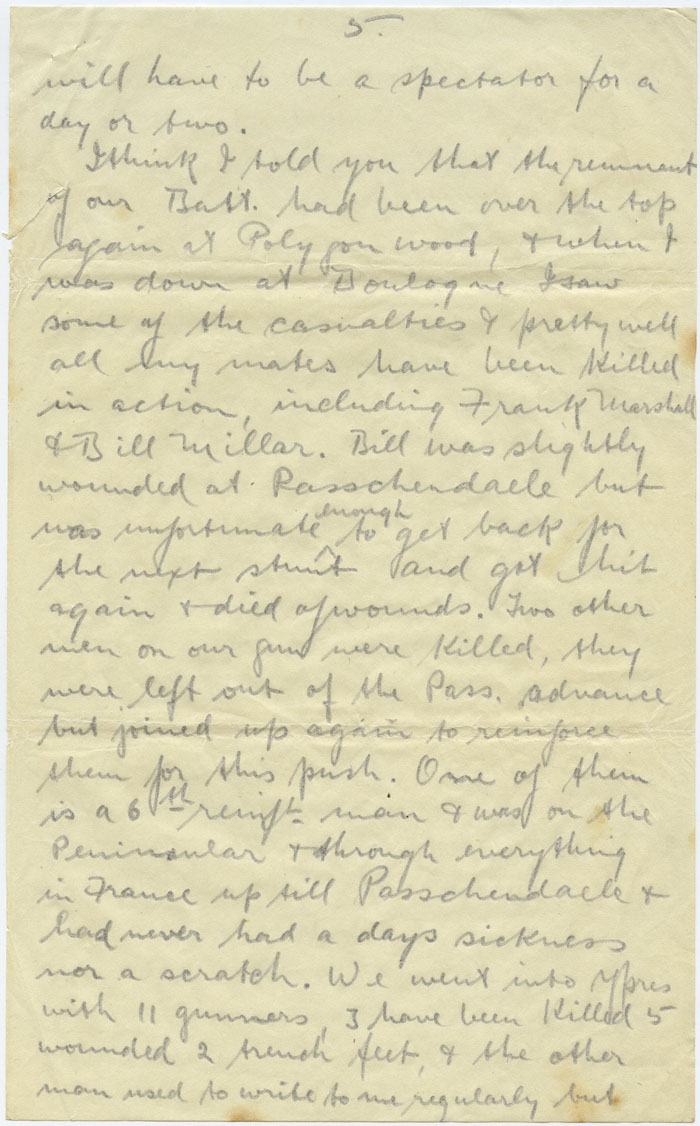 5.
will have to be a spectator for a
day or two.
I think I told you that the remnant
of our Batt. had been over the top
again at Polygon wood, & when I
was down at Boulogne I saw
some of the casualties & pretty well
all my mates have been killed
in action, including Frank Marshall
& Bill Millar. Bill was slightly
wounded at Passchendaele but
was unfortunate enough to get back for
the next stunt and got hit
again & died of wounds. Two other
men on our gun were killed, they
were left out of the Pass. advance
but joined up again to reinforce
them for this push. One of them
is a 6th reinft. man & was on the
Peninsular & through everything
in France up till Passchendaele &
had never had a days sickness
nor a scratch. We went into Ypres
with 11 gunners, 3 have been killed 5
wounded 2 trench feet, & the other
man used to write to me regularly but